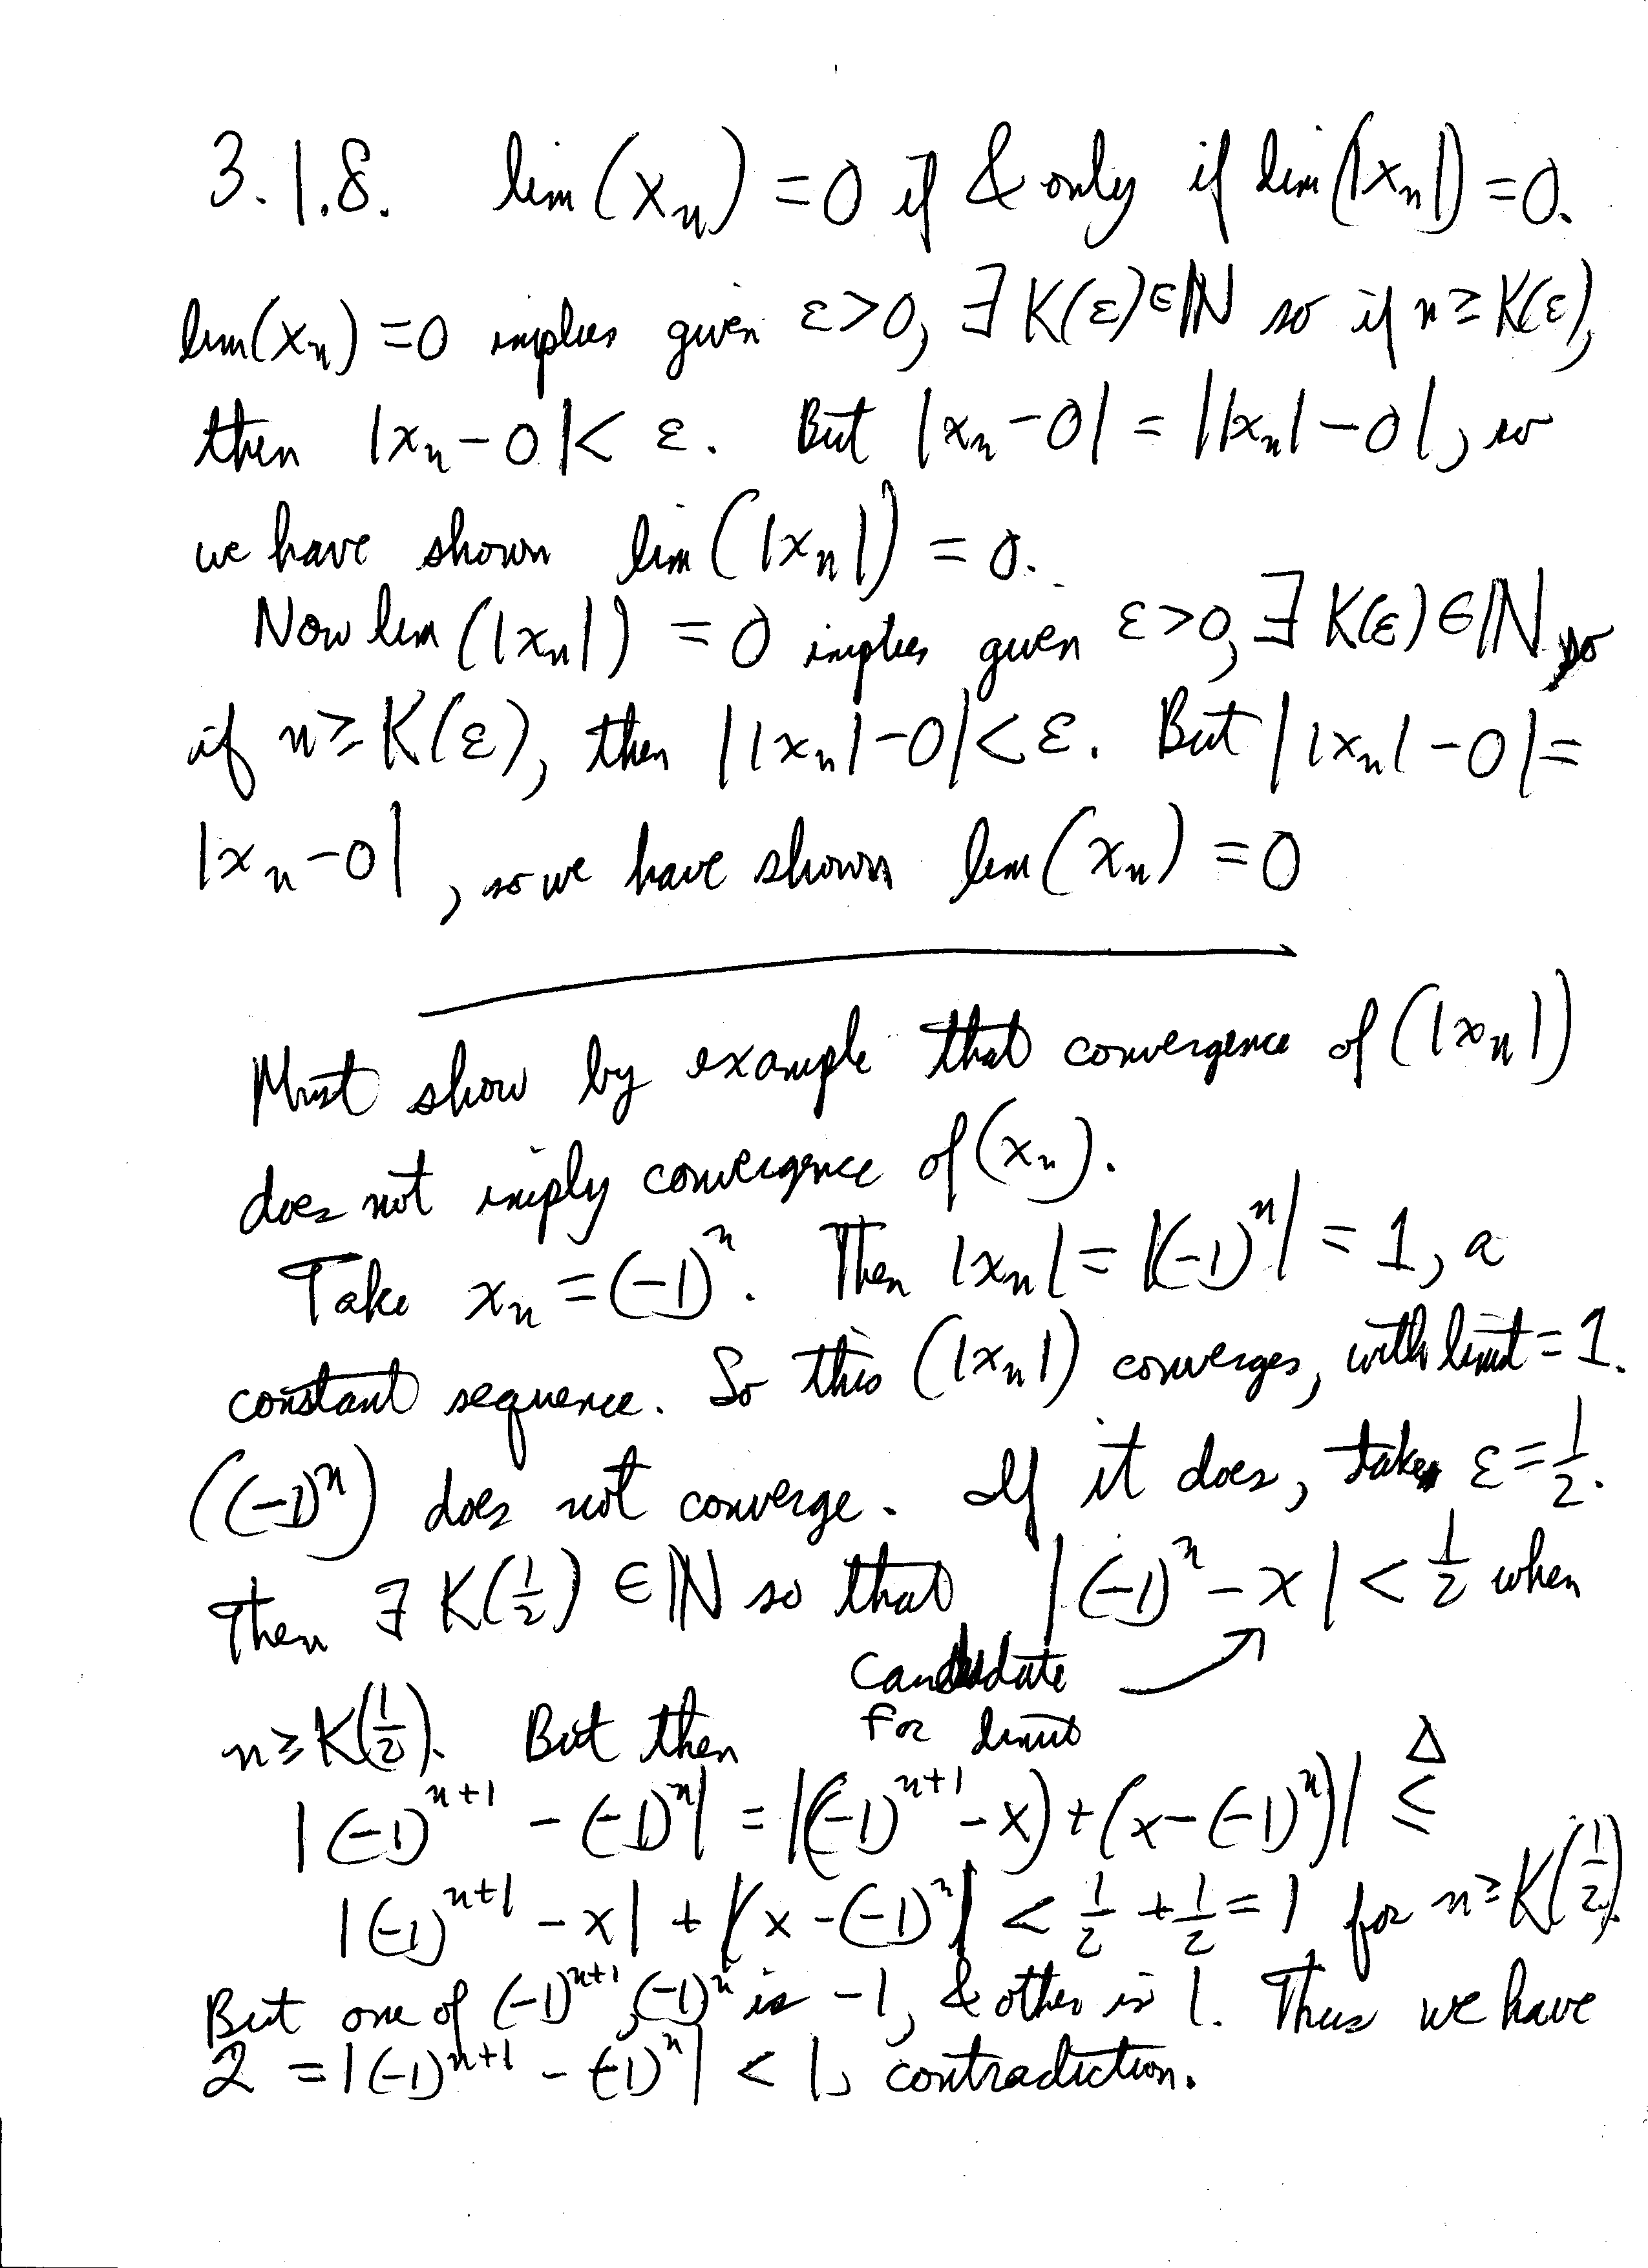 3.1.8. lim (xₙ) = 0 if & only if lim (|xₙ|) = 0.
lim(xₙ) = 0 implies given ε>0, ∃ K(ε) ∈ ℕ so if n ≥ K(ε),
then |xₙ - 0| < ε. But |xₙ - 0| = ||xₙ| - 0|, so
we have shown lim (|xₙ|) = 0.
Now lim (|xₙ|) = 0 implies given ε>0, ∃ K(ε) ∈ ℕ so
if n ≥ K(ε), then ||xₙ| - 0| < ε. But ||xₙ| - 0| =
|xₙ - 0|, so we have shown lim (xₙ) = 0
Must show by example that convergence of (|xₙ|)
does not imply convergence of (xₙ).
Take xₙ = (-1)ⁿ. Then |xₙ| = |(-1)ⁿ| = 1, a
constant sequence. So this (|xₙ|) converges, with limit = 1.
((-1)ⁿ) does not converge. If it does, take ε = 1/2.
Then ∃ K(1/2) ∈ ℕ so that |(-1)ⁿ - x| < 1/2 when
candidate
for limit
n ≥ K(1/2). But then
|(-1)ⁿ⁺¹ - (-1)ⁿ| = |((-1)ⁿ⁺¹ - x) + (x - (-1)ⁿ)| ≤ Δ
|(-1)ⁿ⁺¹ - x| + |x - (-1)ⁿ| < 1/2 + 1/2 = 1 for n ≥ K(1/2).
But one of (-1)ⁿ⁺¹, (-1)ⁿ is -1, & other is 1. Thus we have
2 = |(-1)ⁿ⁺¹ - (-1)ⁿ| < 1, contradiction.